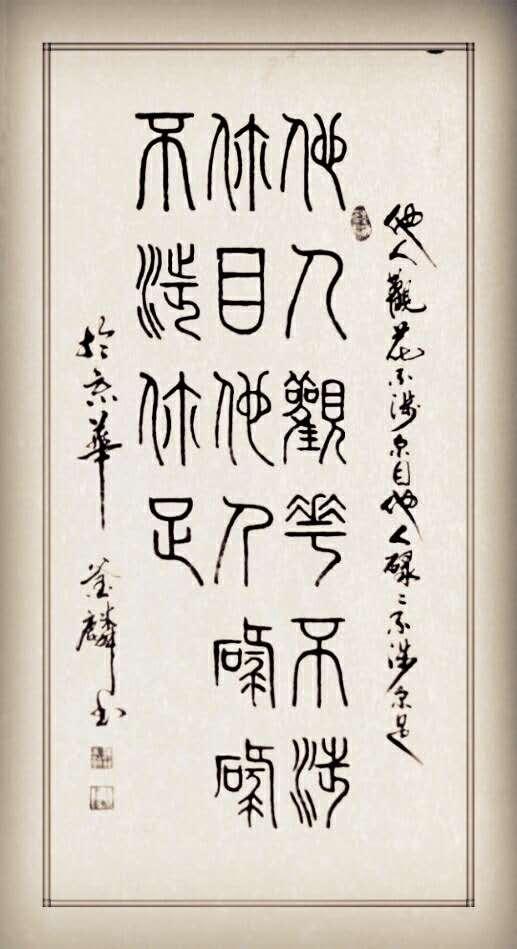 他人觀花不涉尔目他人碌〻不涉尔足
他人觀華不涉
你目他人碌碌
不涉你足
於京華 麟书